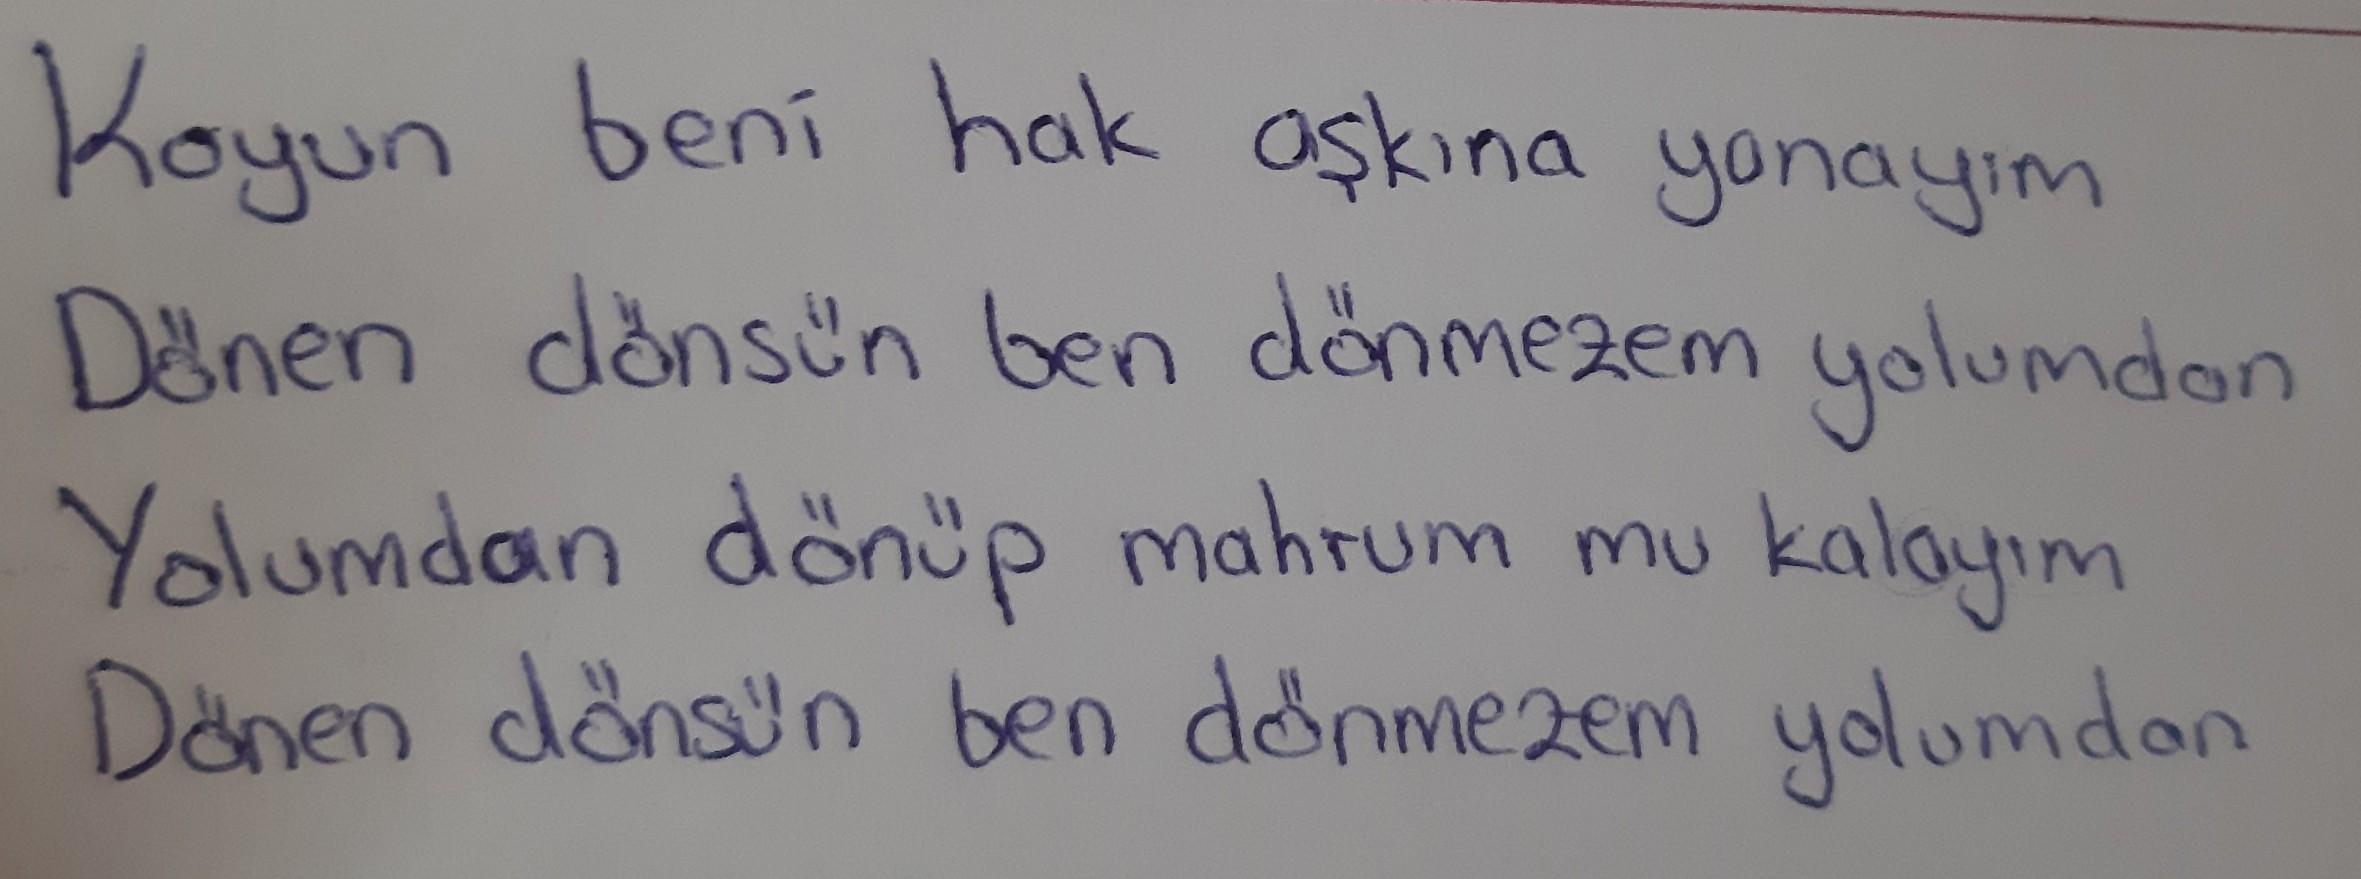 Koyun beni hak aşkına yanayım
Dönen dönsün ben dönmezem yolumdan
Yolumdan dönüp mahrum mu kalayım
Dönen dönsün ben dönmezem yolumdan